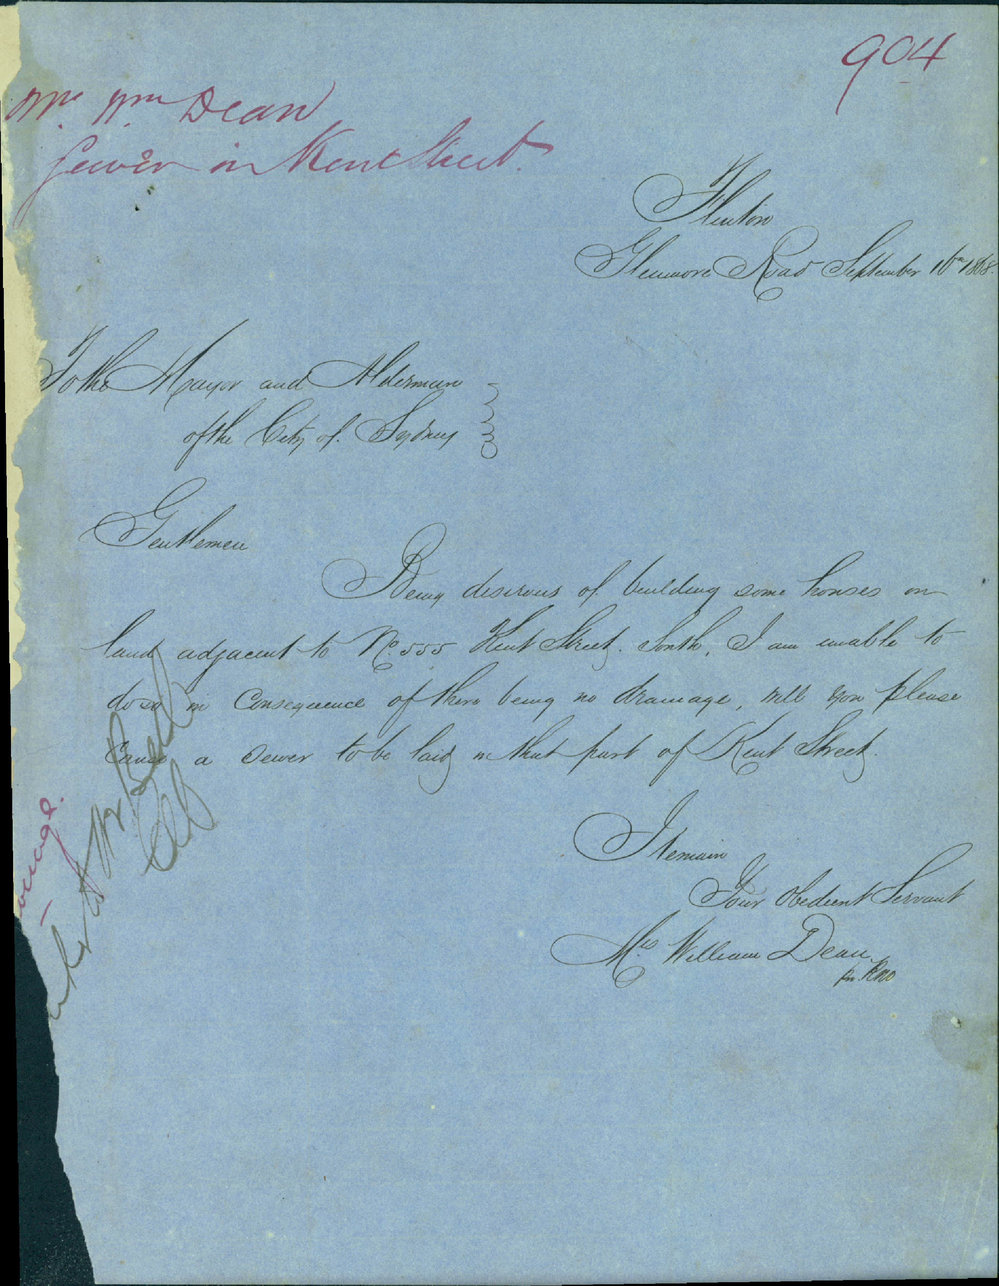 904
Mrs Wm Dean
Sewer in Kent Street.
Flinton
Glenmore Road September 16th 1868.
To the Mayor and Alderman
of the City of Sydney
Gentlemen
Being desirous of building some houses on
land adjacent to No 555 Kent Street. South, I am unable to
do so in Consequence of there being no drainage, will you please
Cause a Sewer to be laid in that part of Kent Street.
I remain
Your Obedient Servant
Mrs William Dean
Mr Bell